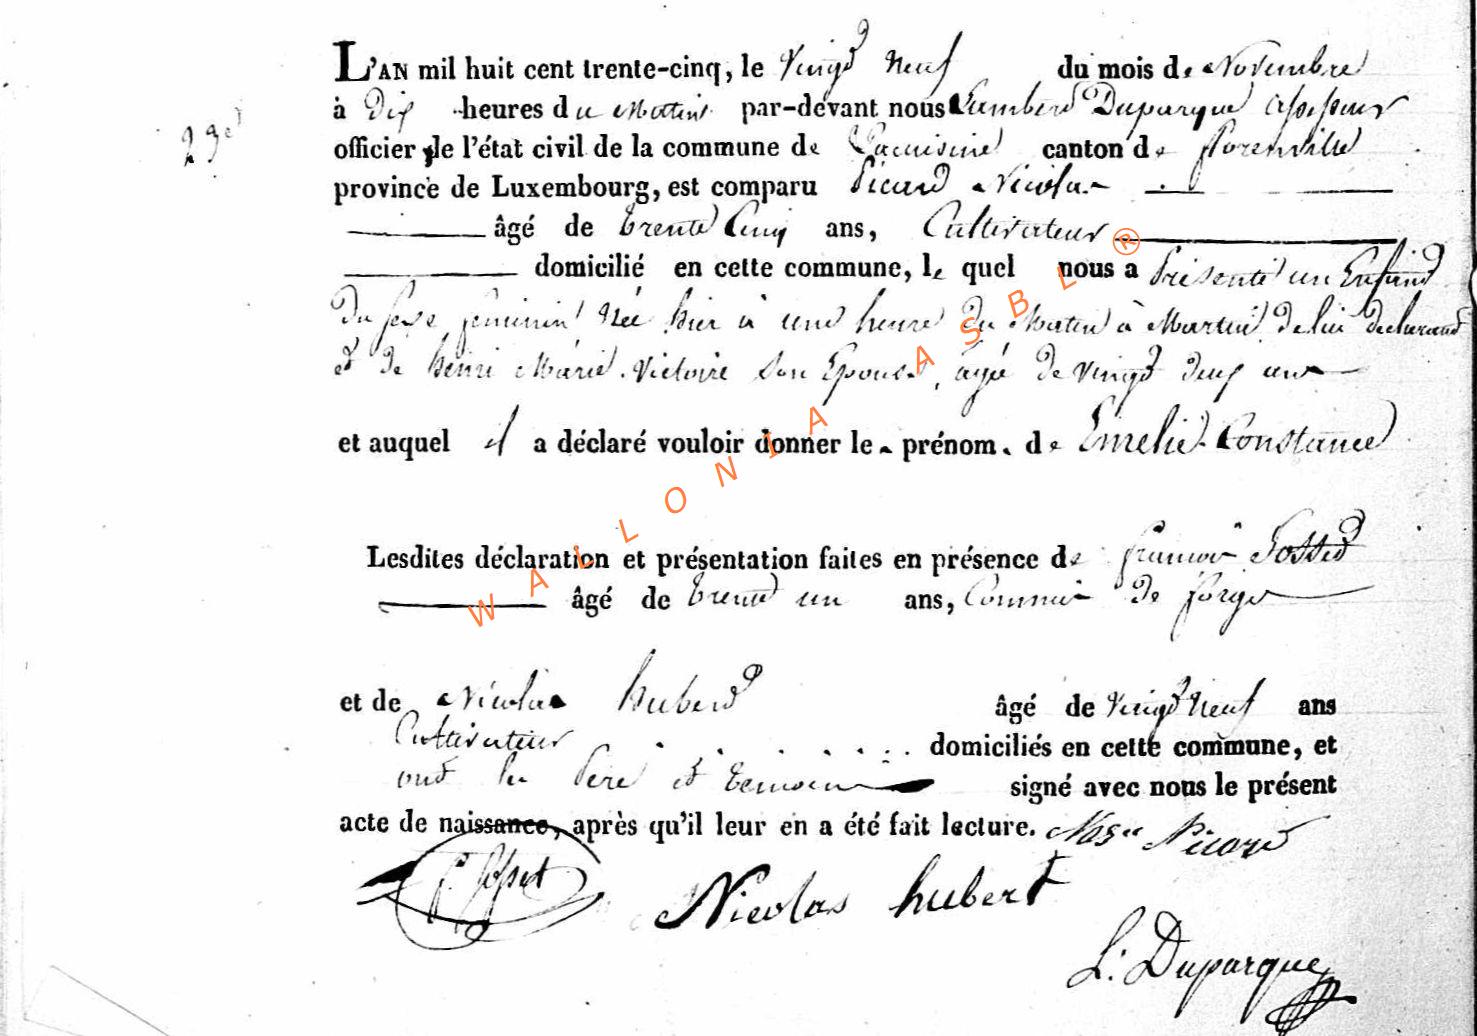 L'AN mil huit cent trente-cinq, le vingt neuf du mois de Novembre
à dix heures du Matin par-devant nous Lambert Duparque assesseur
23e
officier de l'état civil de la commune de Lacuisine canton de florenville
province de Luxembourg, est comparu Picard Nicolas
âgé de trente Cinq ans, Cultivateur
domicilié en cette commune, le quel nous a Présenté un Enfant
du sexe feminin Née hier à une heure du Matin à Martué de lui declarant
et de henri Marie Victoire son Epouse, agée de vingt deux ans
et auquel il a déclaré vouloir donner le prénom de Emelie Constance
Lesdites déclaration et présentation faites en présence de françois Gosset
âgé de trente un ans, Commis de forge
et de Nicolas hubert âgé de vingt Neuf ans
Cultivateur domiciliés en cette commune, et
ont les Père et temoins signé avec nous le présent
acte de naissance, après qu'il leur en a été fait lecture. Picard
Nicolas hubert
L. Duparque
WALLONIA ASBL ®